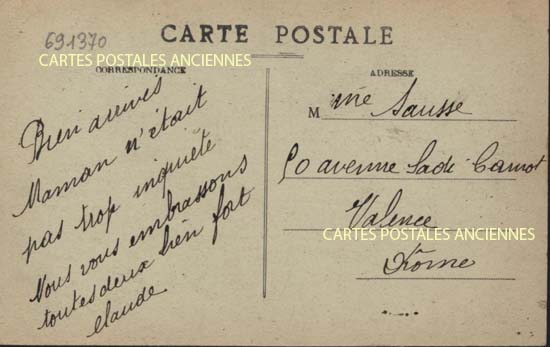 691370
CARTE POSTALE
CARTES POSTALES ANCIENNES
CORRESPONDANCE
Bien arrivés
Maman n'était
pas trop inquiète
Nous vous embrassons
toutes deux bien fort
Claude
ADRESSE
M me Sausse
50 avenue Sadi Carnot
Valence
CARTES POSTALES ANCIENNES
Drôme